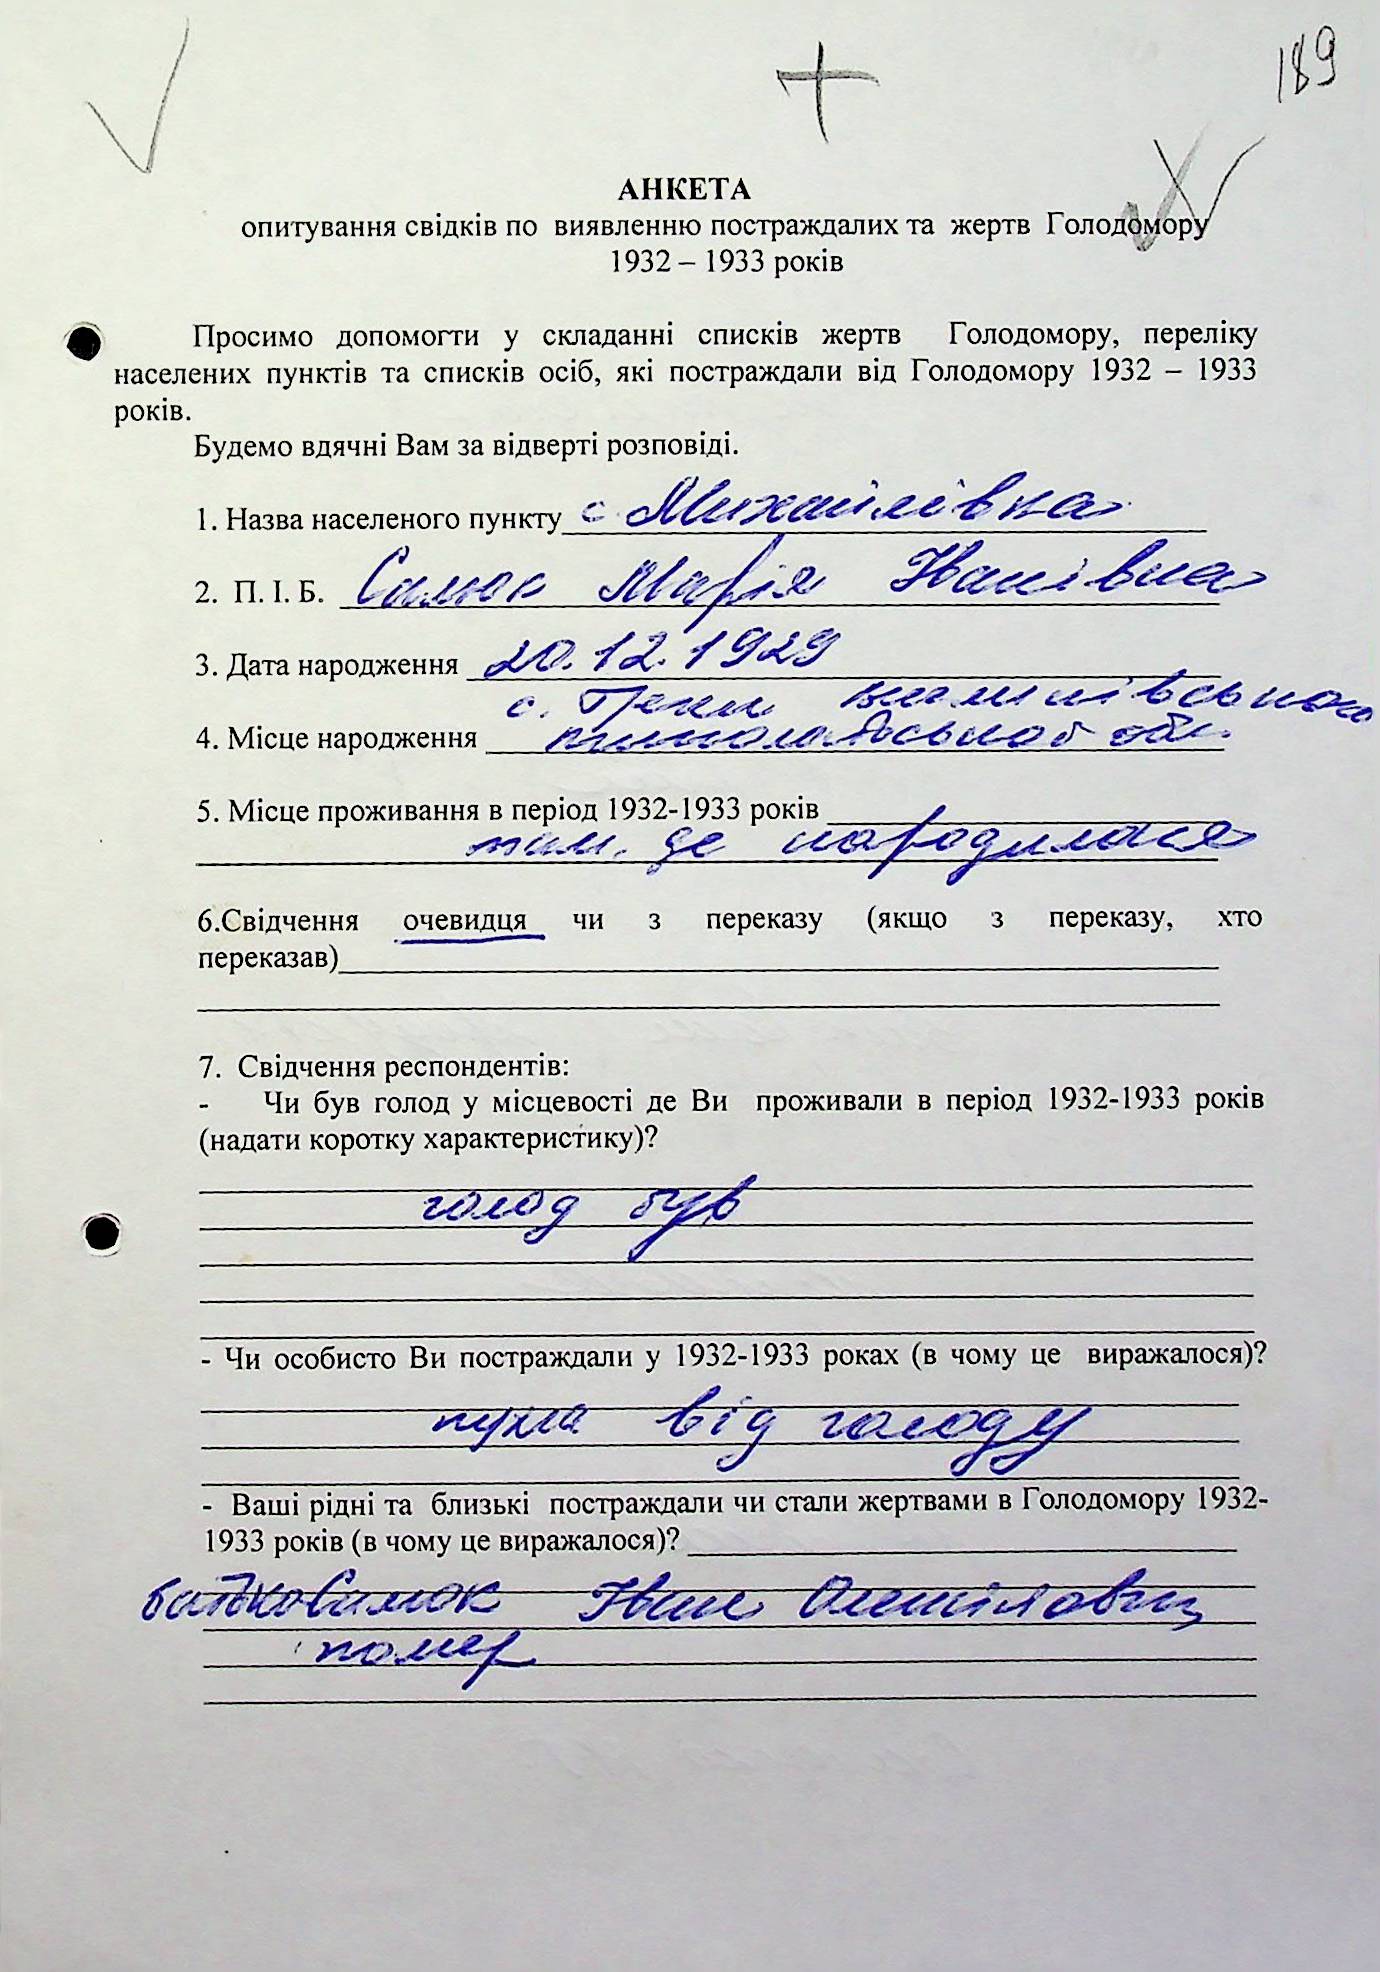 189
АНКЕТА
опитування свідків по виявленню постраждалих та жертв Голодомору
1932 – 1933 років
Просимо допомогти у складанні списків жертв Голодомору, переліку
населених пунктів та списків осіб, які постраждали від Голодомору 1932 – 1933
років.
Будемо вдячні Вам за відверті розповіді.
1. Назва населеного пункту с. Михайлівка
2. П. І. Б. Самок Марія Іванівна
3. Дата народження 20.12.1929
с.
4. Місце народження обл.
5. Місце проживання в період 1932-1933 років
там, де народилася
6.Свідчення очевидця чи з переказу (якщо з переказу, хто
переказав)
7. Свідчення респондентів:
- Чи був голод у місцевості де Ви проживали в період 1932-1933 років
(надати коротку характеристику)?
голод був
- Чи особисто Ви постраждали у 1932-1933 роках (в чому це виражалося)?
пухла від голоду
- Ваші рідні та близькі постраждали чи стали жертвами в Голодомору 1932-
1933 років (в чому це виражалося)?
батько Самок Іван
помер